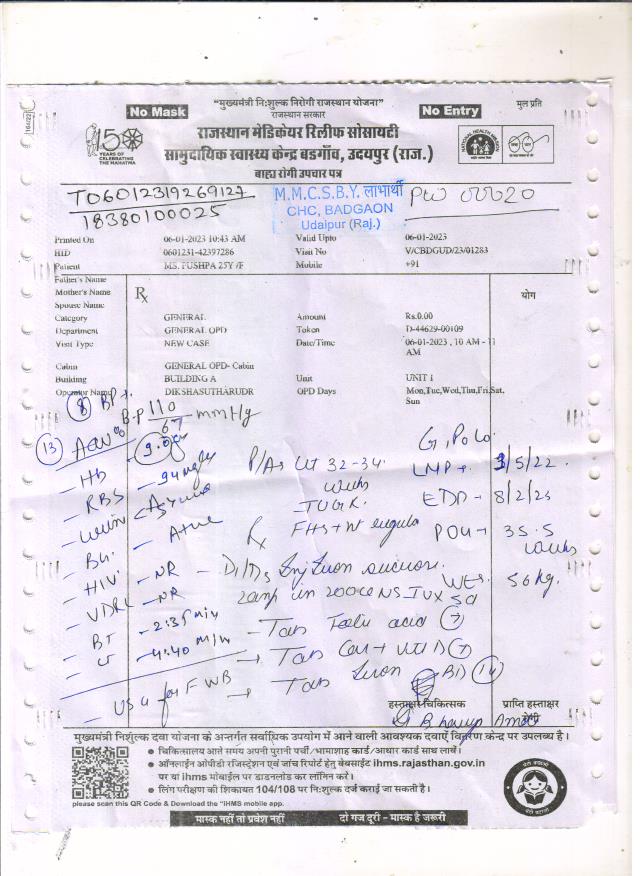 164/22
"मुख्यमंत्री नि:शुल्क निरोगी राजस्थान योजना"
राजस्थान सरकार
No Mask
No Entry
मुल प्रति
राजस्थान मेडिकेयर रिलीफ सोसायटी
सामुदायिक स्वास्थ्य केन्द्र बडगाँव, उदयपुर (राज.)
बाह्य रोगी उपचार पत्र
150 YEARS OF CELEBRATING THE MAHATMA
NATIONAL HEALTH MISSION
T06012319269127
18380100025
M.M.C.S.B.Y. लाभार्थी
CHC, BADGAON
Udaipur (Raj.)
00020
Printed On 06-01-2023 10:43 AM Valid Upto 06-01-2023
HID 0601231-42397286 Visit No V/CBDGUD/23/01283
Patient MS. PUSHPA 25Y /F Mobile +91
Father's Name
Mother's Name
Spouse Name
Rx
योग
Category GENERAL Amount Rs.0.00
Department GENERAL OPD Token D-44629-00109
Visit Type NEW CASE Date/Time 06-01-2023 , 10 AM - 11 AM
Cabin GENERAL OPD- Cabin
Building BUILDING A Unit UNIT 1
Operator Name DIKSHASUTHARUDR OPD Days Mon,Tue,Wed,Thu,Fri,Sat, Sun
8 BP
B.P 110/67 mmHg
13
- Hb
- RBS - 94 mg
P/A Ut 32-34 weeks
LMP - 3/5/22
EDD - 8/2/23
FHS
POG - 35.5 weeks
Rx
- HIV - NR
- VDRL - NR
Inj Iron sucrose
2amp in 200cc NS
Wt. 56 kg.
- BT - 2:35 min
- CT - 4:40 min
- Tab Folic acid 7
→ Tab Cal + Vit D 7
→ Tab Iron BD 14
- USG for FWB
हस्ताक्षर चिकित्सक
प्राप्ति हस्ताक्षर
मुख्यमंत्री निशुल्क दवा योजना के अन्तर्गत सर्वाधिक उपयोग में आने वाली आवश्यक दवाऐं वितरण केन्द्र पर उपलब्ध है।
● चिकित्सालय आते समय अपनी पुरानी पर्ची/भामाशाह कार्ड/आधार कार्ड साथ लावें।
● ऑनलाईन ओपीडी रजिस्ट्रेशन एवं जांच रिपोर्ट हेतु वेबसाईट ihms.rajasthan.gov.in
पर या ihms मोबाईल पर डाउनलोड कर लॉगिन करें।
● लिंग परीक्षण की शिकायत 104/108 पर नि:शुल्क दर्ज कराई जा सकती है।
please scan this QR Code & Download the "IHMS mobile app.
मास्क नहीं तो प्रवेश नहीं
दो गज दूरी - मास्क है जरूरी